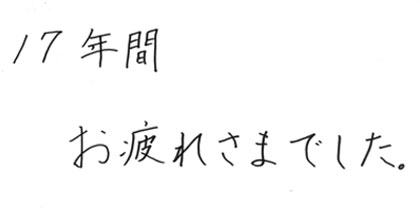 17年間
お疲れさまでした。